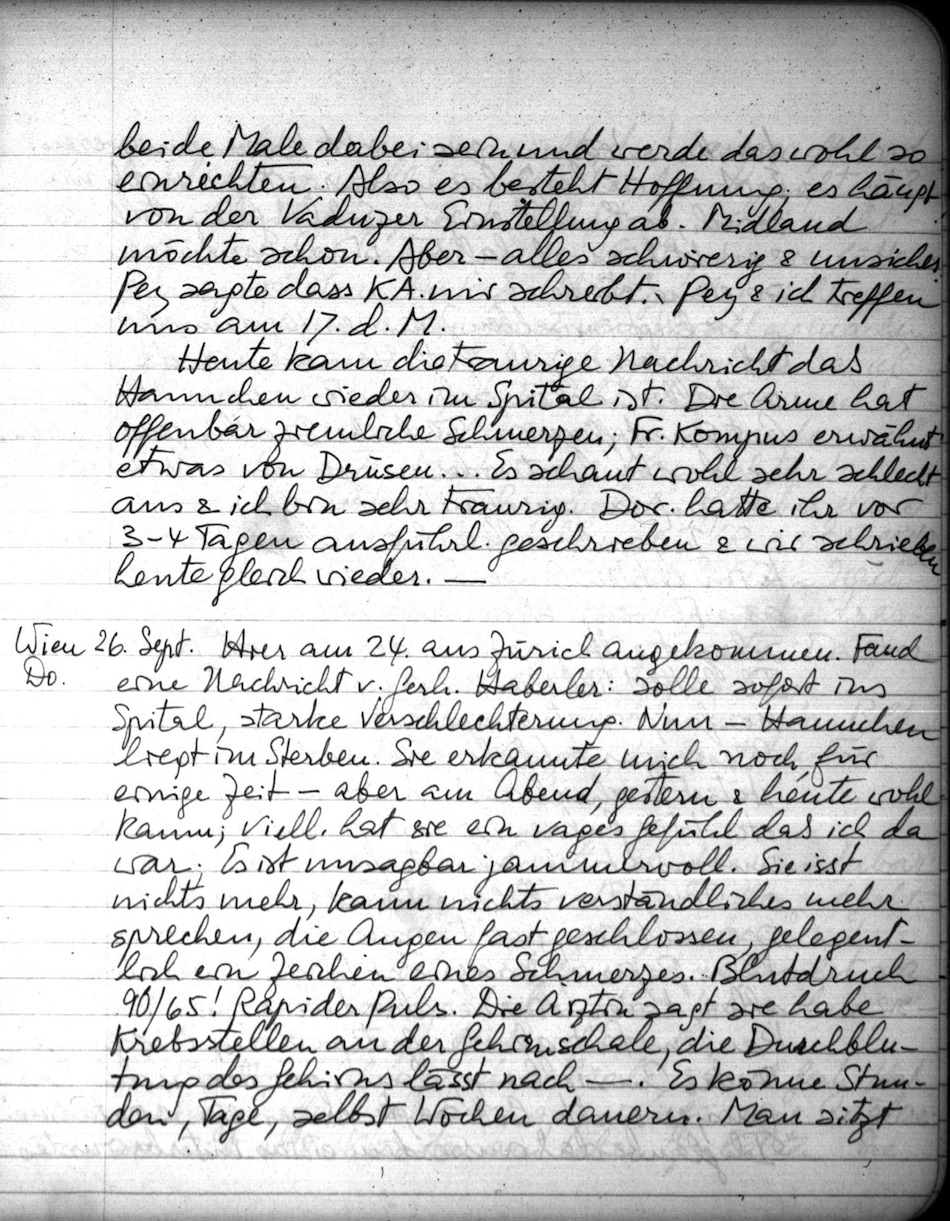 beide Male dabei sein und werde das wohl so
einrichten. Also es besteht Hoffnung; es hängt
von der Vaduzer Einstellung ab. Midland
möchte schon. Aber – alles schwierig & unsicher.
Pey sagte dass KA. mir schreibt. Pey & ich treffen
uns am 17. d. M.
Heute kam die traurige Nachricht das
Hannchen wieder im Spital ist. Die Arme hat
offenbar ziemliche Schmerzen; Fr. Kompus erwähnt
etwas von Drüsen... Es schaut wohl sehr schlecht
aus & ich bin sehr traurig. Dor. hatte ihr vor
3–4 Tagen ausführl. geschrieben & wir schrieben
heute gleich wieder. —
Wien 26. Sept. Hier am 24. aus Zürich angekommen. Fand
Do. eine Nachricht v. Gerh. Haberler: solle sofort ins
Spital, starke Verschlechterung. Nun – Hannchen
liegt im Sterben. Sie erkannte mich noch für
einige Zeit – aber am Abend, gestern & heute wohl
kaum; viell. hat sie ein vages Gefühl das ich da
war. Es ist unsagbar jammervoll. Sie isst
nichts mehr, kann nichts verständliches mehr
sprechen, die Augen fast geschlossen, gelegent-
lich ein Zeichen eines Schmerzes. Blutdruck
90/65! Rapider Puls. Die Ärztin sagt sie habe
Krebsstellen an der Gehirnschale, die Durchblu-
tung des Gehirns lässt nach —. Es könne Stun-
den, Tage, selbst Wochen dauern. Man sitzt